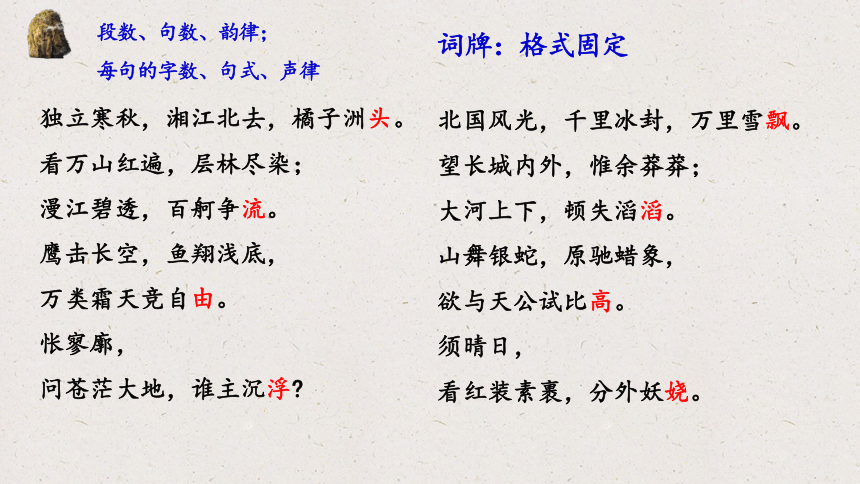 段数、句数、韵律；
每句的字数、句式、声律
词牌：格式固定
独立寒秋，湘江北去，橘子洲头。
看万山红遍，层林尽染；
漫江碧透，百舸争流。
鹰击长空，鱼翔浅底，
万类霜天竞自由。
怅寥廓，
问苍茫大地，谁主沉浮？
北国风光，千里冰封，万里雪飘。
望长城内外，惟余莽莽；
大河上下，顿失滔滔。
山舞银蛇，原驰蜡象，
欲与天公试比高。
须晴日，
看红装素裹，分外妖娆。